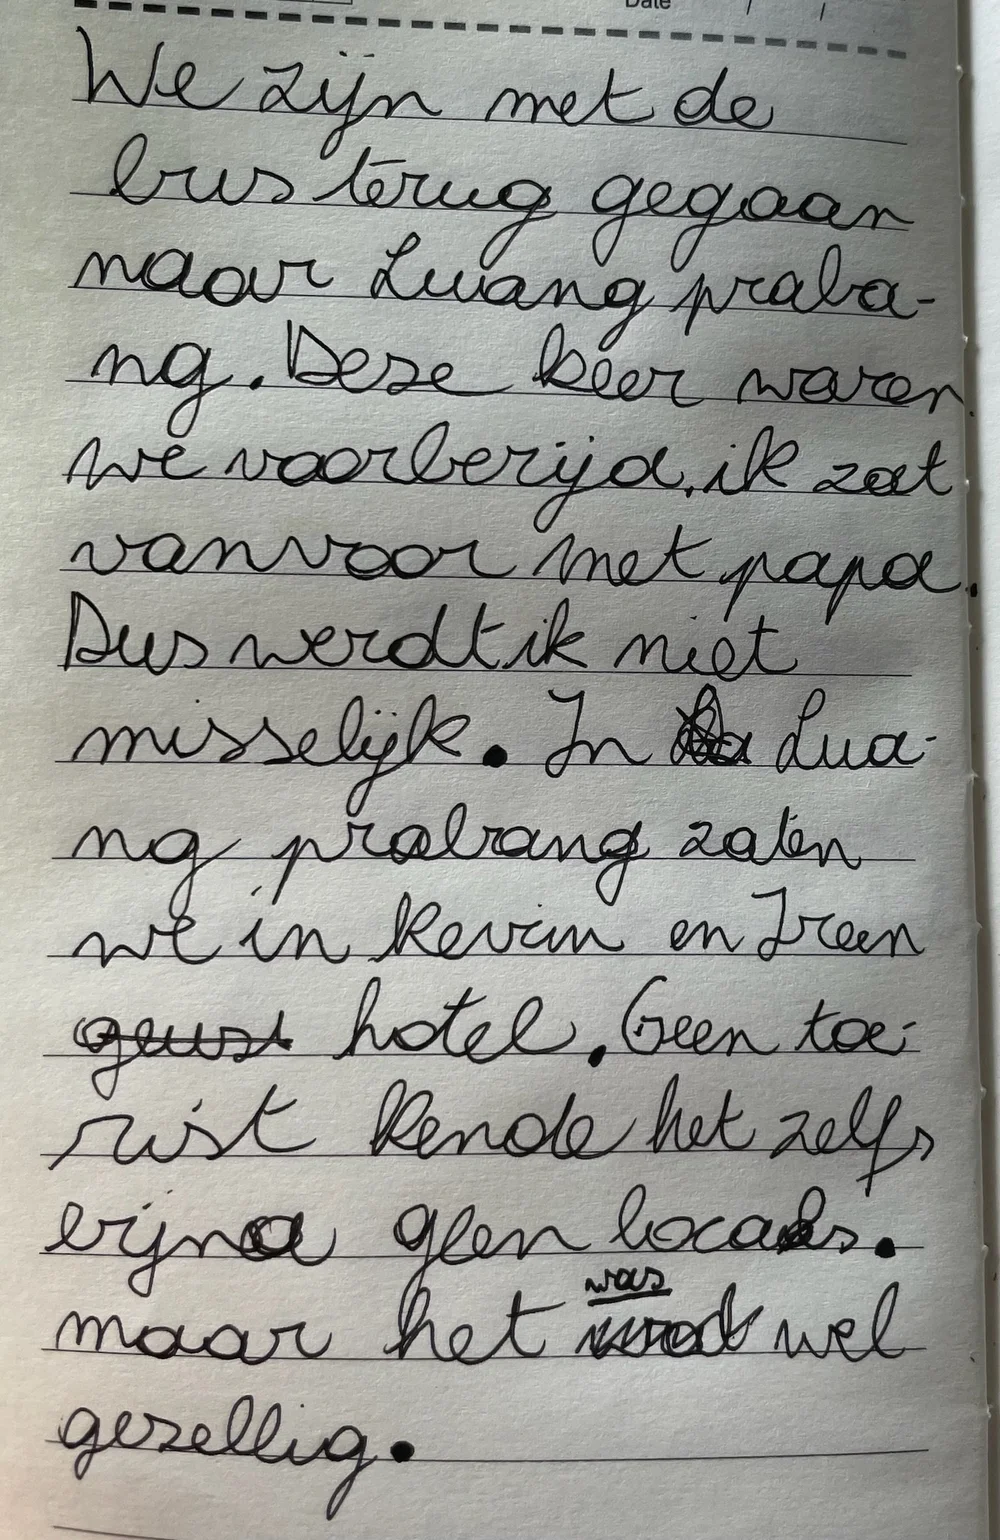 Date / /
We zijn met de
bus terug gegaan
naar Luang praba-
ng. Deze keer waren
we voorberijd. ik zat
vanvoor met papa.
Dus werdt ik niet
misselijk. In Lua-
ng prabang zaten
we in Kevin en Ireen
geust hotel. Geen toe-
rist kende het zelfs
erijna geen locals.
maar het was wel
gezellig.